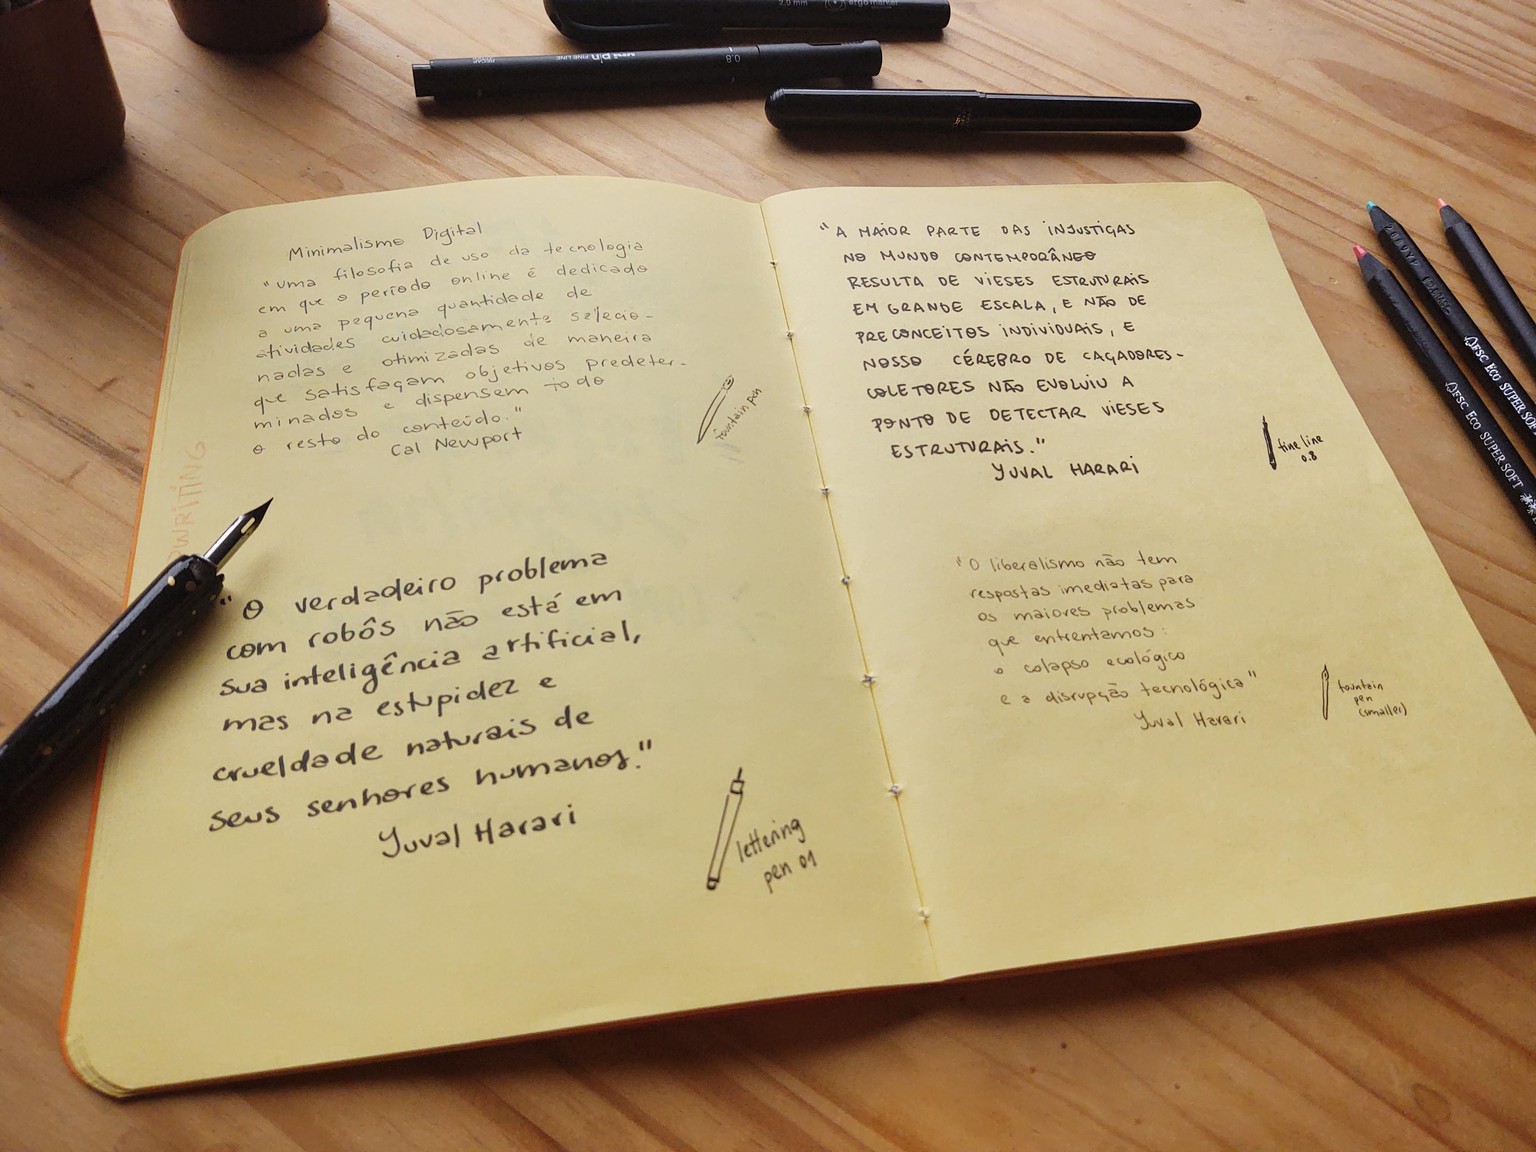 2.0 mm ergo marker
uni PIN FINE LINE 0.8
Minimalismo Digital
"uma filosofia de uso da tecnologia
em que o período online é dedicado
a uma pequena quantidade de
atividades cuidadosamente selecio-
nadas e otimizadas de maneira
que satisfaçam objetivos predeter-
minados e dispensem todo
o resto do conteúdo."
Cal Newport
fountain pen
"O verdadeiro problema
com robôs não está em
sua inteligência artificial,
mas na estupidez e
crueldade naturais de
seus senhores humanos."
Yuval Harari
lettering
pen 01
"A MAIOR PARTE DAS INJUSTIÇAS
NO MUNDO CONTEMPORÂNEO
RESULTA DE VIESES ESTRUTURAIS
EM GRANDE ESCALA, E NÃO DE
PRECONCEITOS INDIVIDUAIS, E
NOSSO CÉREBRO DE CAÇADORES-
COLETORES NÃO EVOLUIU A
PONTO DE DETECTAR VIESES
ESTRUTURAIS."
YUVAL HARARI
fine line
0.8
"O liberalismo não tem
respostas imediatas para
os maiores problemas
que enfrentamos:
o colapso ecológico
e a disrupção tecnológica"
Yuval Harari
fountain
pen
(smaller)
FSC ECO SUPER SOFT
FSC ECO SUPER SOFT